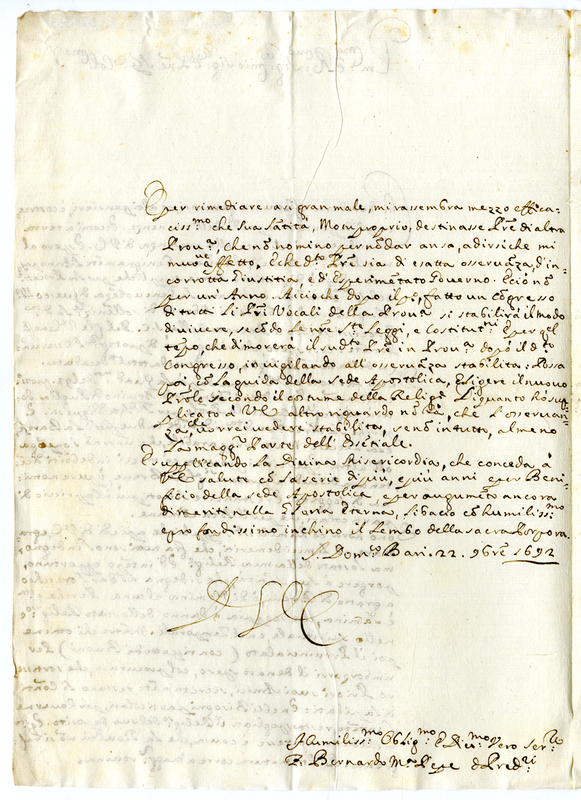 E per rimediare a si gran male, mi rassembra mezzo effica-
ciss:mo che sua Santità, Motuproprio, destinasse Pre: di altra
Prova:, che nō nomino per nō dar ansa, a dirsi che mi
muove affetto, E che dto Pre: sia di esatta osservanza, d'in-
corrotta Giustitia, e d'Esperimētato Governo. E ciò nō
per un Anno. Acciochè dopo il fatto un Cōgresso
di tutti Li Pri: Vocali della Prova: si stabilirà il modo
di vivere, secōdo Le nre Ste: Leggi, e Costitutni: E per ql
tēpo, che dimorerà il sudto: Pre: in Prova: dopo il dto
Congresso, io vigilando all'osservanza stabilita: Possa
poi, cō La guida della sede Apostolica, Eligere il nuovo
Prōle secondo il costume della Religne: Il quanto hò sup-
plicato à VE altro riguardo nō hà, che L'osservan-
za, che vorrei vedere stabilita, se nō in tutto, almeno
La magg:r Parte dell'Esētiale.
E supplicando La Divina Misericordia, che conceda à
VE salute cō La serie di più, e più anni e per Beni-
ficio della sede Apostolica, e per augumēto ancora
di meriti nella Gloria Eterna, Li bacio cō humiliss:mo
e profondissimo inchino il Lembo della sacra Porpora.
S. Domco: Bari. 22. 9bre 1692
DVE
Humiliss:mo Oblig:mo E Div:mo Vero Ser:re
Fr Bernardo Ma: Pepe de Pred:ri